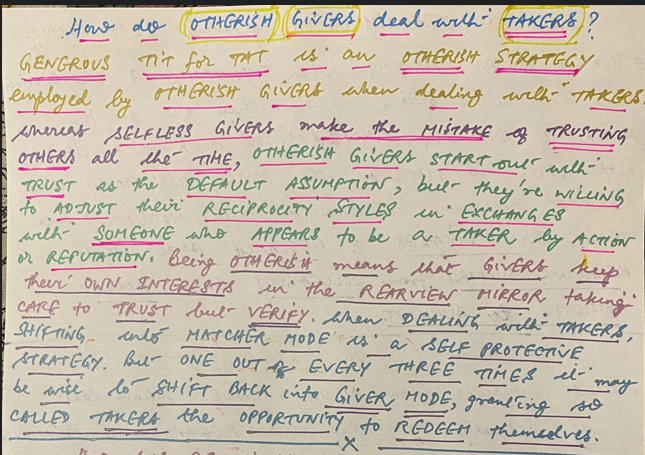 How do OTHERISH GIVERS deal with TAKERS?
GENEROUS TIT for TAT is an OTHERISH STRATEGY
employed by OTHERISH GIVERS when dealing with TAKERS.
whereas SELFLESS GIVERS make the MISTAKE of TRUSTING
OTHERS all the TIME, OTHERISH GIVERS START out with
TRUST as the DEFAULT ASSUMPTION, but they're WILLING
to ADJUST their RECIPROCITY STYLES in EXCHANGES
with SOMEONE who APPEARS to be a TAKER by ACTION
or REPUTATION. Being OTHERISH means that GIVERS keep
their OWN INTERESTS in the REARVIEW MIRROR taking
CARE to TRUST but VERIFY. when DEALING with TAKERS,
SHIFTING into MATCHER MODE is a SELF PROTECTIVE
STRATEGY. But ONE OUT of EVERY THREE TIMES it may
be wise to SHIFT BACK into GIVER MODE, granting so
CALLED TAKERS the OPPORTUNITY to REDEEM themselves.
x